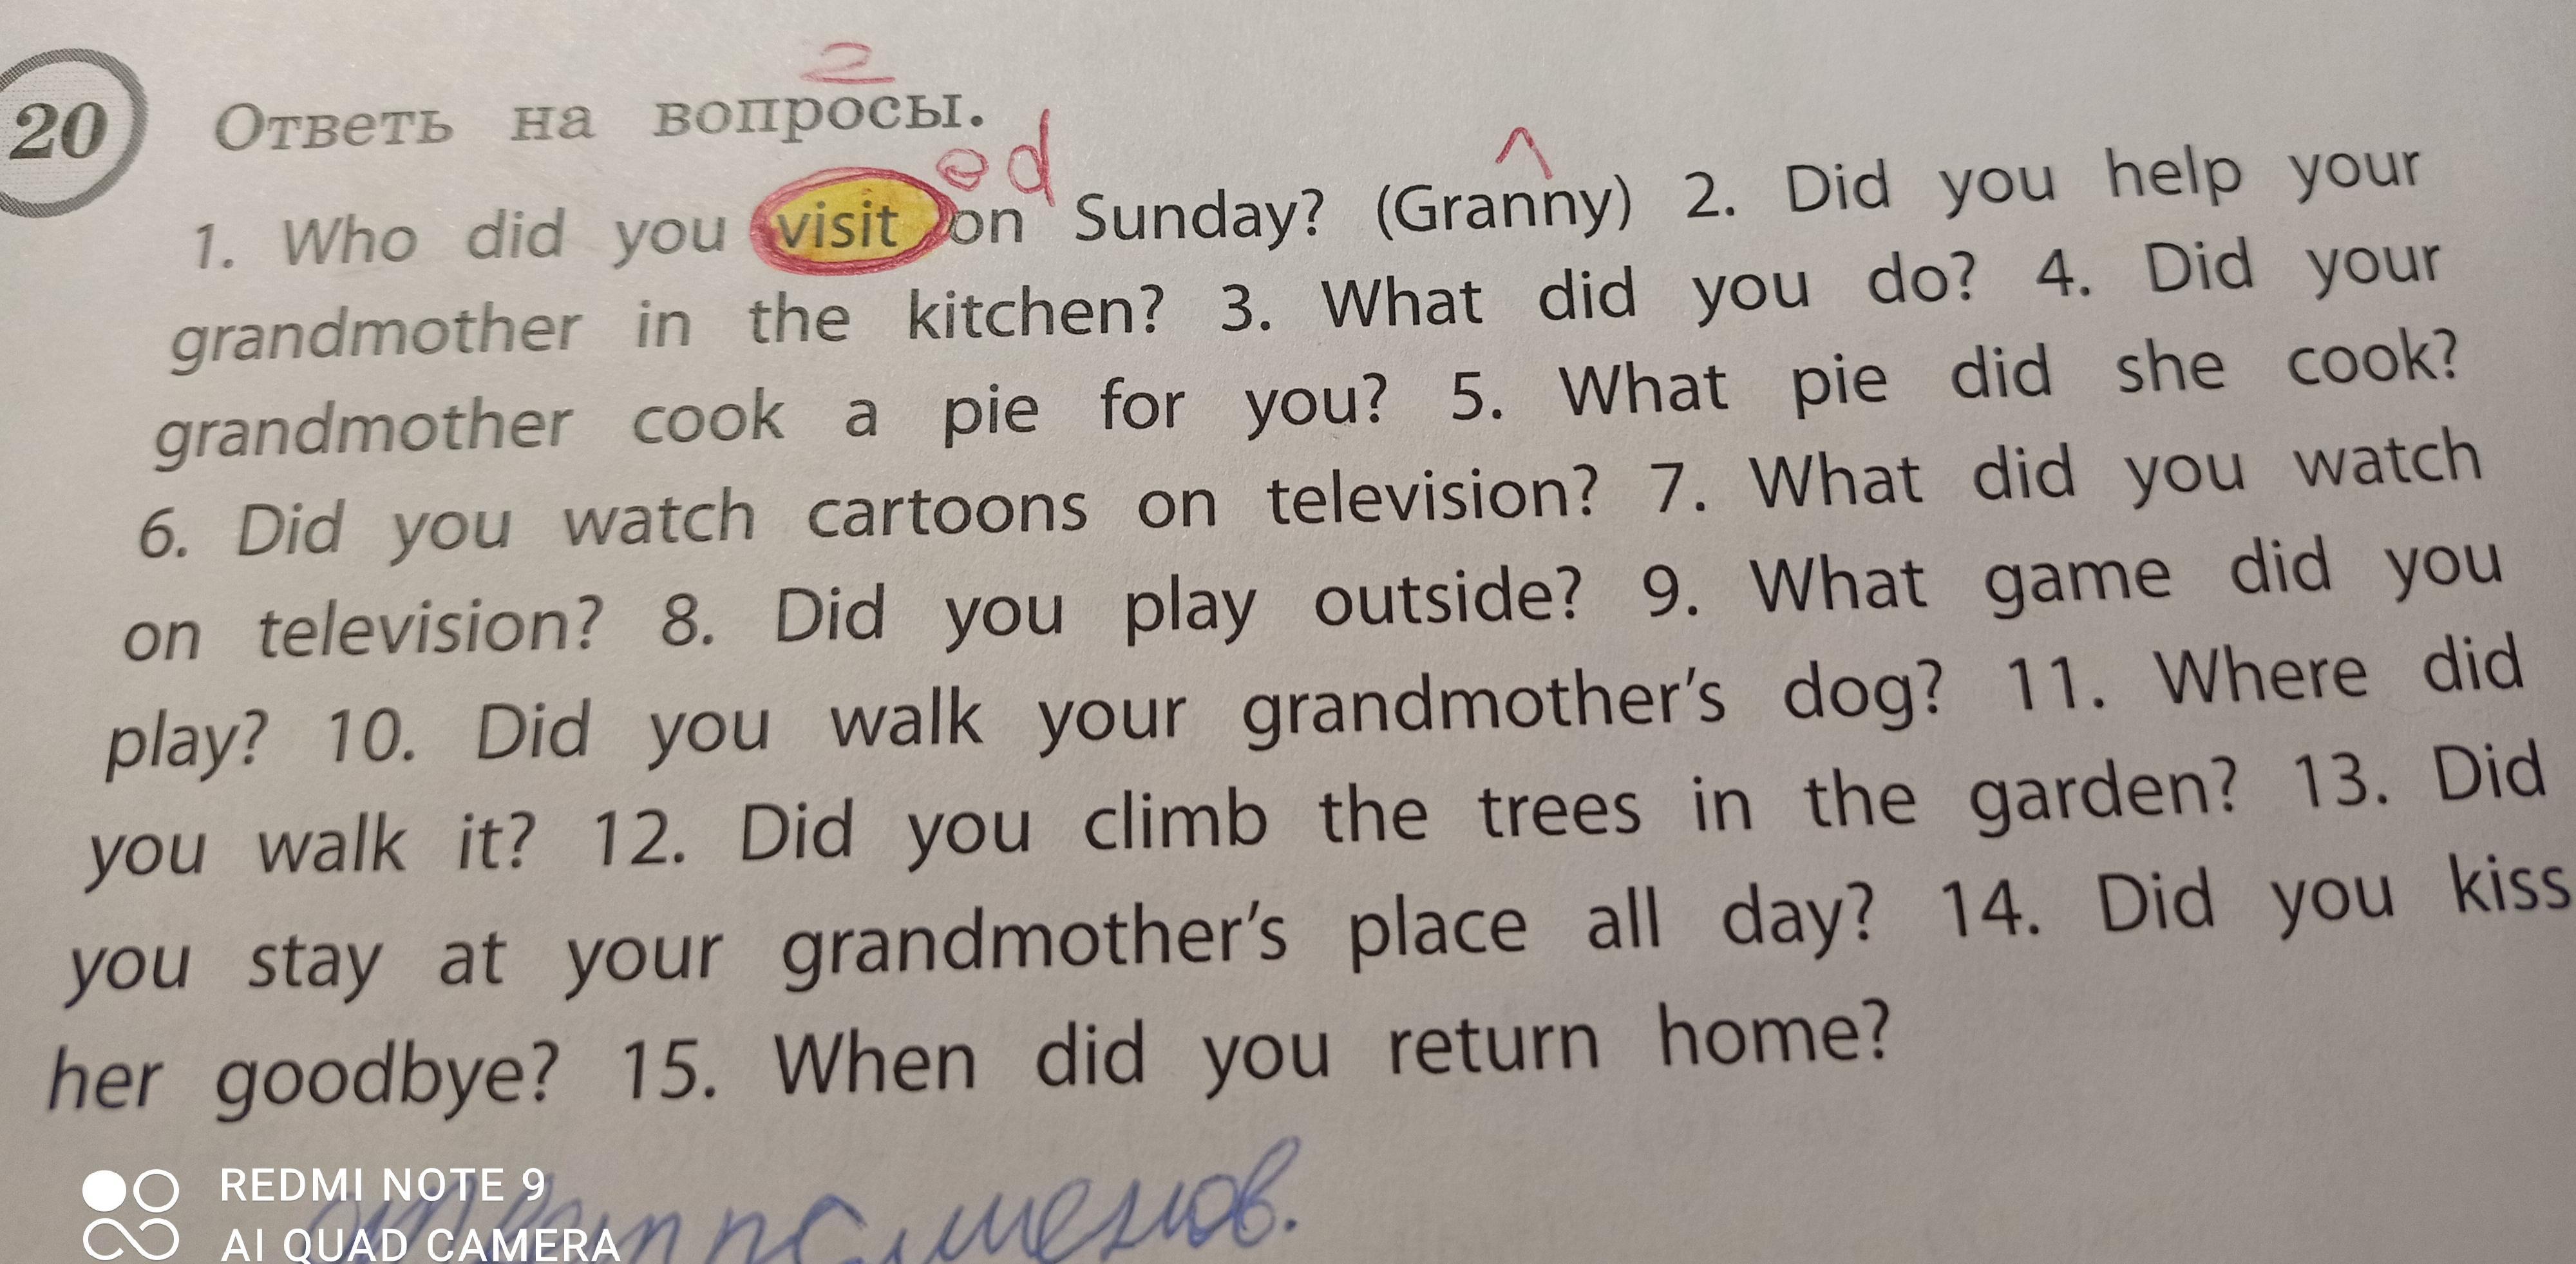 2
20 Ответь на вопросы.
ed
1. Who did you visit on Sunday? (Granny) 2. Did you help your
grandmother in the kitchen? 3. What did you do? 4. Did your
grandmother cook a pie for you? 5. What pie did she cook?
6. Did you watch cartoons on television? 7. What did you watch
on television? 8. Did you play outside? 9. What game did you
play? 10. Did you walk your grandmother's dog? 11. Where did
you walk it? 12. Did you climb the trees in the garden? 13. Did
you stay at your grandmother's place all day? 14. Did you kiss
her goodbye? 15. When did you return home?
REDMI NOTE 9
AI QUAD CAMERA